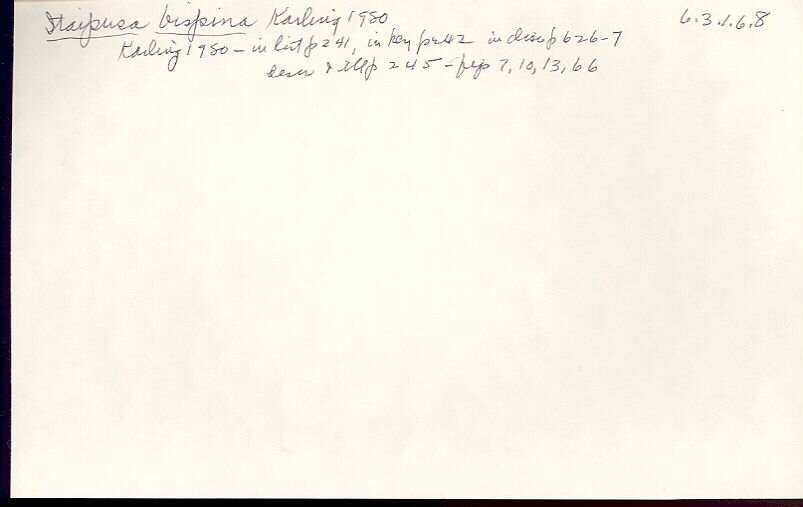 Itaipusa bispina Karling 1980 6.3.1.6.8
Karling 1980 - in list p 241, in key p 242 in disc p 626-7
descr & Ill p 245 - figs 7, 10, 13, 66